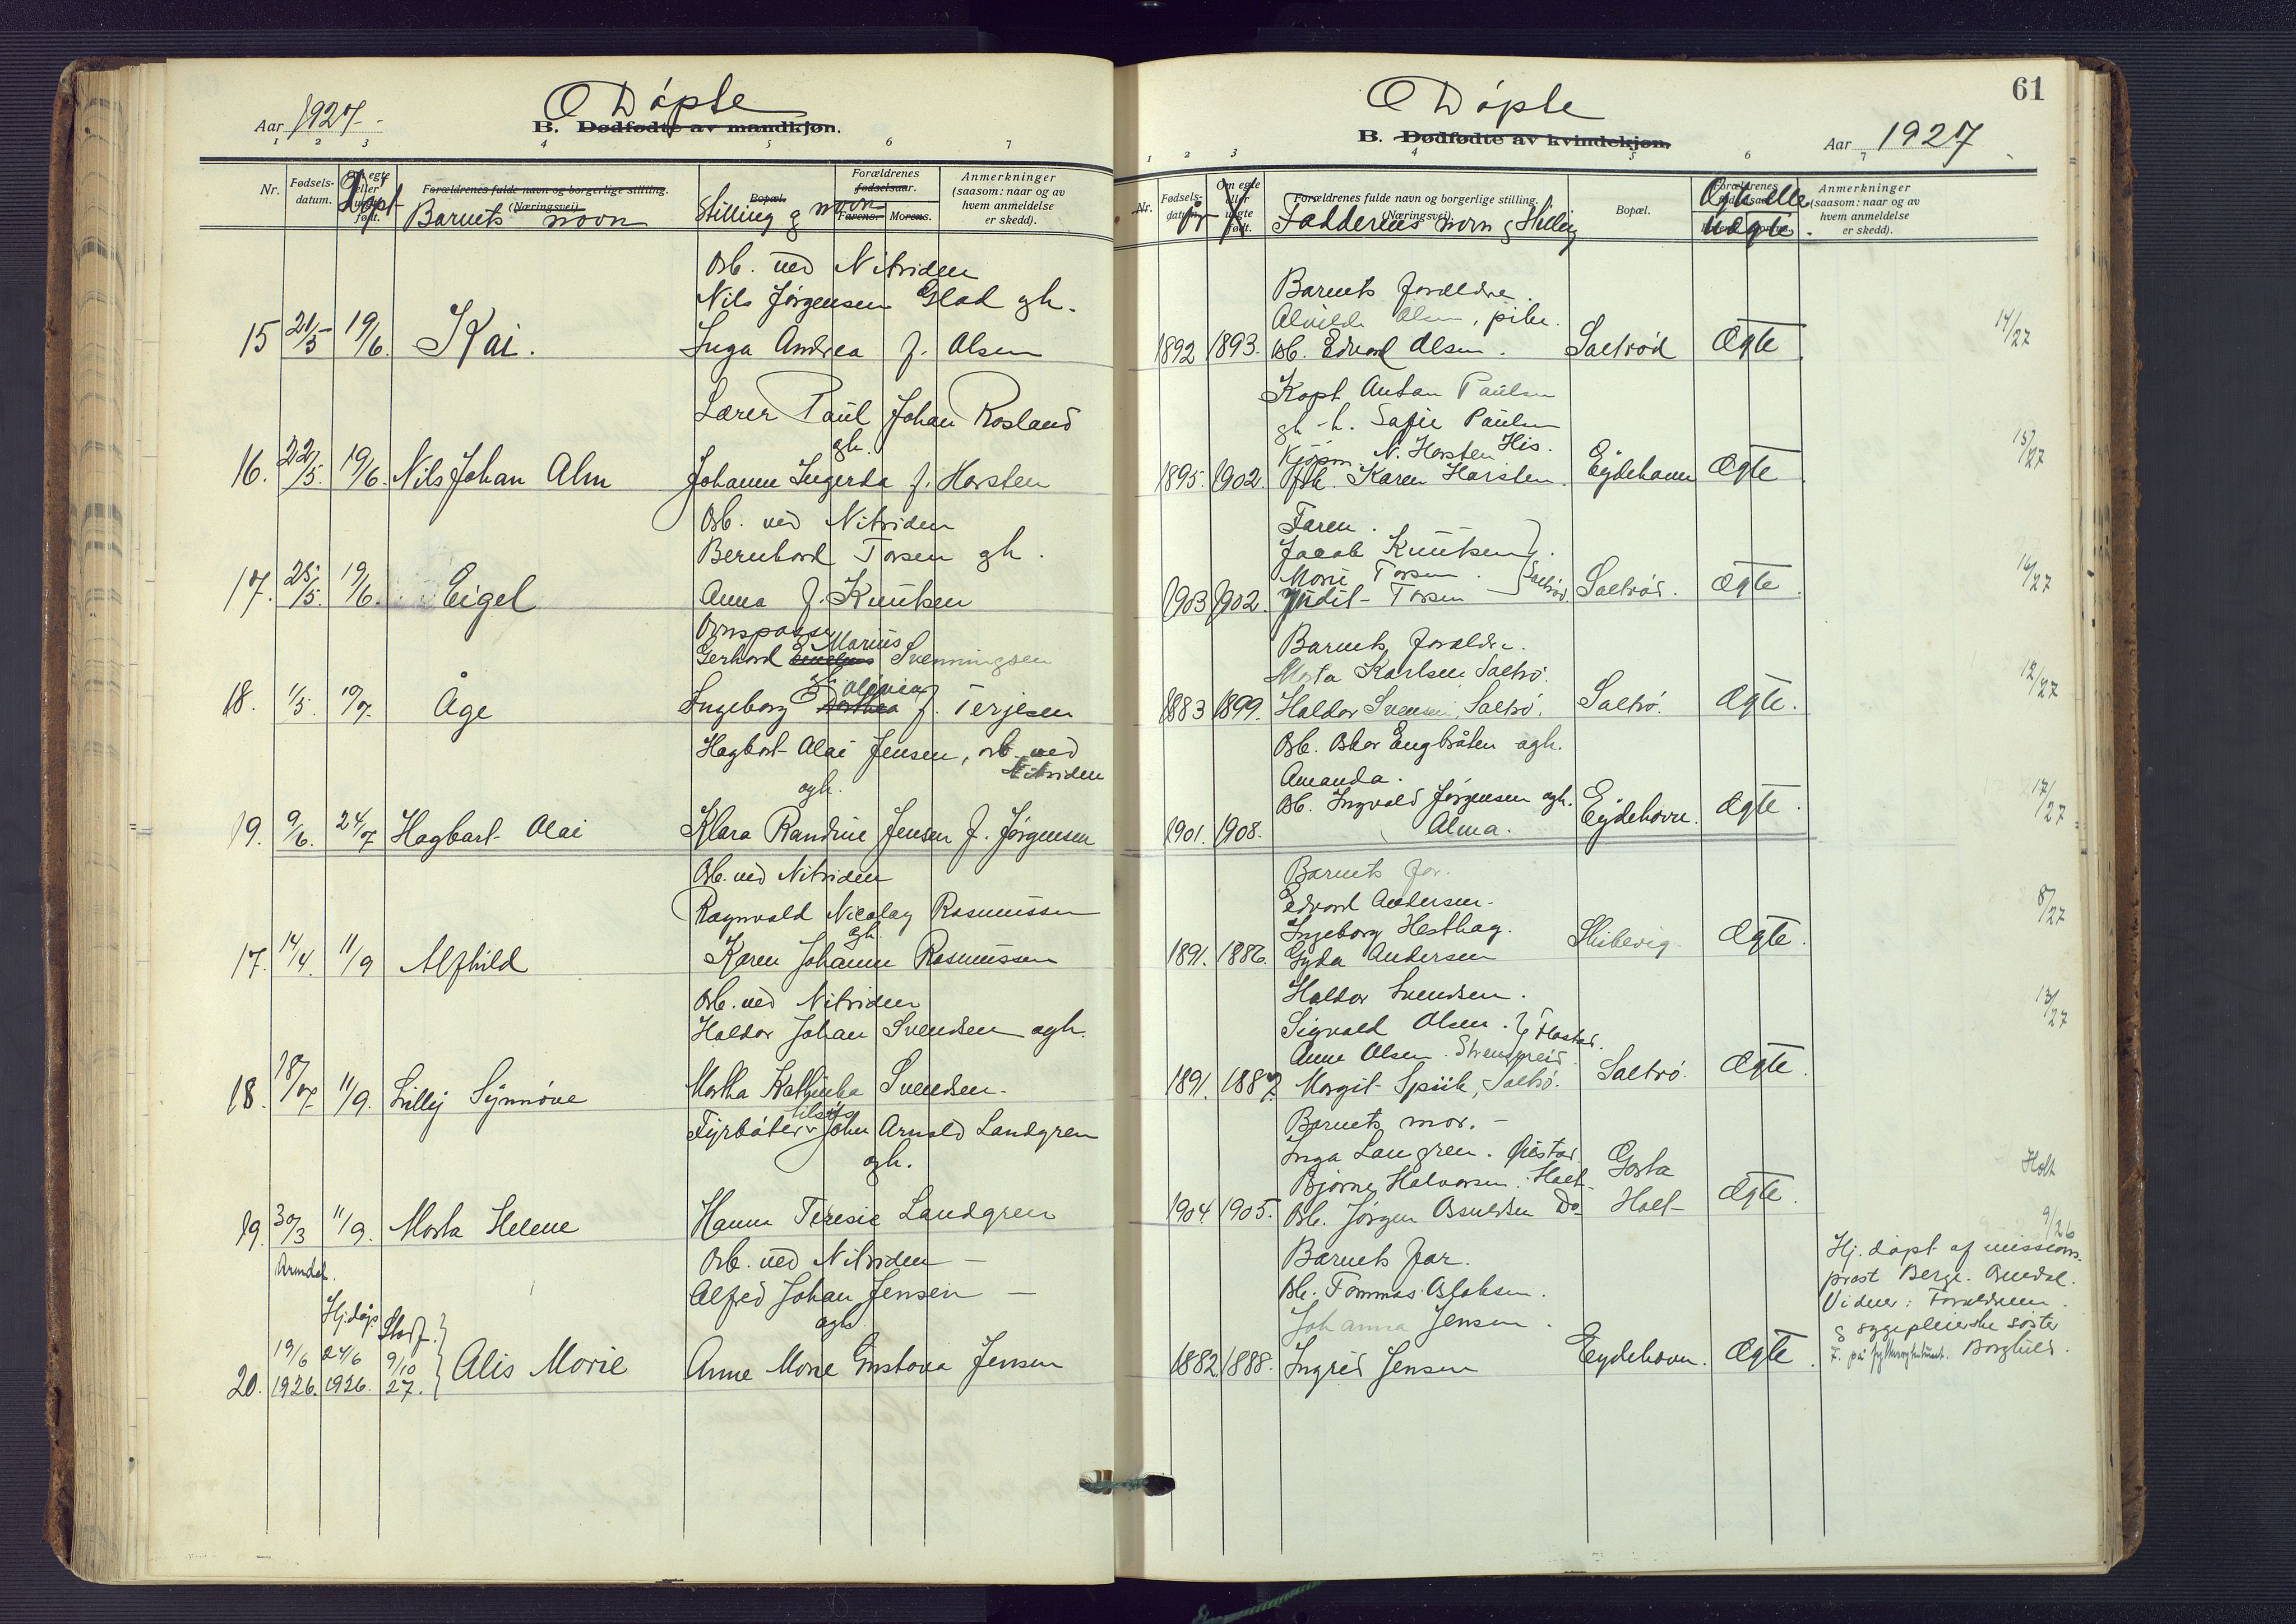 Døpte
Aar 1927.
B. Dødfødte av mandkjøn.
1 2 3 4 5 6 7
Nr.
Fødsels-
datum.
Om egte
eller
uegte
født.
Døpt
Forældrenes fulde navn og borgerlige stilling.
(Næringsvei).
Barnets navn
Bopæl.
Stilling og navn
Forældrenes
fødselsaar.
Farens. Morens.
Anmerkninger
(saasom: naar og av
hvem anmeldelse
er skedd).
Arb. ved Nitriden
Nils Jørgensen Glad gh.
15 21/5 19/6. Kai. Inga Andrea f. Olsen
Lærer Paul Johan Rosland
gh.
16. 22/5. 19/6. Nils Johan Alm Johanne Ingerda f. Horsten
Arb. ved Nitriden
Bernhard Torsen gh.
17. 25/5. 19/6. Eigel Anna f. Knutsen
Marius
Gerhard Svenningsen
18. 1/5. 10/7. Åge Ingeborg Dorthea f. Terjesen
Hagbart Alai Jensen, arb. ved
Nitriden
ogh.
19. 9/6. 24/7 Hagbart Alai Klara Randine Jensen f. Jørgensen
Arb. ved Nitriden
Ragnvald Nicolay Rasmussen
gh.
17. 14/4. 11/9 Alfhild Karen Johanne Rasmussen
Arb. ved Nitriden
Haldor Johan Svendsen ogh.
18. 18/7. 11/9. Lilly Synnøve Martha Kathinka Svendsen.
tilsøs
Fyrbøter John Arnold Landgren
ogh.
19. 30/3 11/9. Marta Helene Hanna Teresie Landgren
Arendal.
Arb. ved Nitriden –
Alfred Johan Jensen –
ogh
Hj.døp. Stadf.
19/6 24/6 9/10
20. 1926. 1926. 27. Alis Marie Anne Marie Gustava Jensen
61
Døpte
B. Dødfødte av kvindekjøn.
Aar 1927
1 2 3 4 5 6 7
Nr.
Fødsels-
datum.
år
Om egte
eller
uegte
født.
Forældrenes fulde navn og borgerlige stilling.
(Næringsvei).
Faddernes navn & Stilling
Bopæl.
Forældrenes
Ægte eller
Uægte.
Anmerkninger
(saasom: naar og av
hvem anmeldelse
er skedd).
Barnets foreldre.
Alvilde Olsen, pike.
1892 1893. Arb. Edvard Olsen. Saltrød Ægte 14/27
Kapt. Anton Paulsen
gh. h. Sofie Paulsen
His.
Kjøpm. N. Horsten
1895. 1902. Frk. Karen Horsten. Eydehavn Ægte 15/27
Faren.
Jacob Knutsen
Marie Torsen. Saltrød.
1903 1902. Judit Torsen Saltrød. Ægte. 16/27
Barnets foreldre.
Marta Karlsen Saltrø.
1883 1899. Haldor Svensen, Saltrø. Saltrø. Ægte. 12/27
Arb. Oskar Engbråten ogh.
Amanda.
Arb. Ingvald Jørgensen ogh.
1901. 1908. Alma. Eydehavn. Ægte. 17/27
Barnets far.
Edvard Andersen.
Ingeborg Hesthag.
1891. 1886. Gyda Andersen Skibevig Ægte. 8/27
Haldor Svendsen.
Sigvald Olsen.
Anne Olsen. Strengereid
1891. 1887. Margit Spiik, Saltrø. Saltrø. Ægte. 13/27
Barnets mor. –
Inga Langren.
Bjarne Halvorsen. Holt
1904 1905. Arb. Jørgen Osuldsen Do Gosta Holt Ægte. Holt
9/26
Barnets far.
Arb. Tommas Aslaksen.
Johanna Jensen.
1882. 1888. Ingrid Jensen Eydehavn. Ægte.
Hj. døpt af missions-
prest Berge. Arendal.
Vidner: Forældrene.
& sygepleierske søster
Borghild.